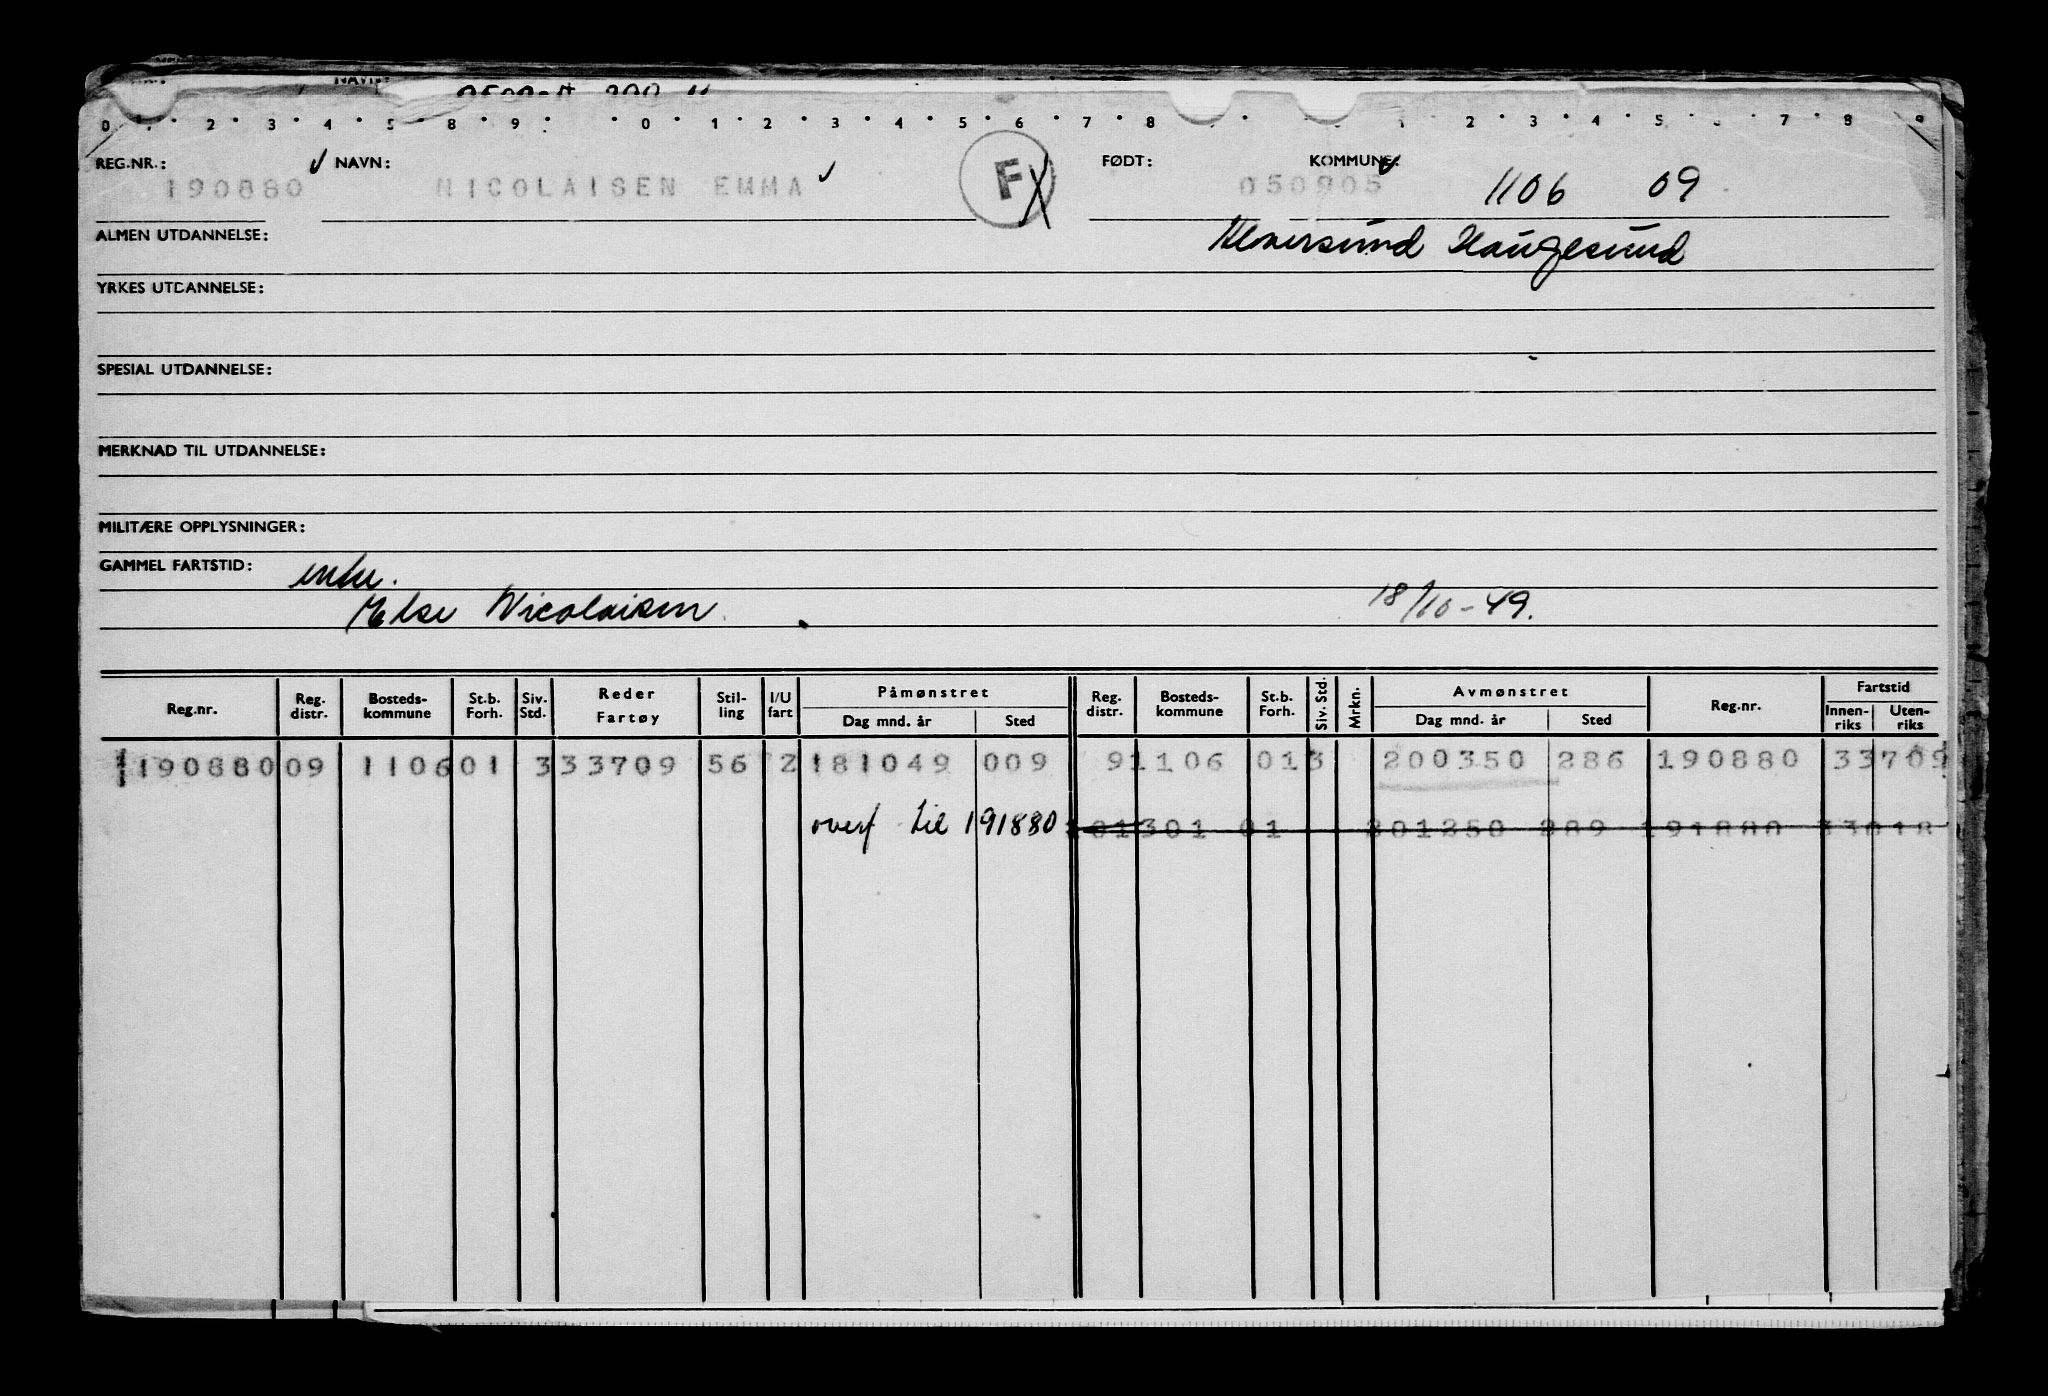 NAVN:
0 1 2 3 4 5 8 9 0 1 2 3 4 5 6 7 8 1 2 3 4 5 7 8 9
REG.NR.: NAVN: F FØDT: KOMMUNE:
190880 NICOLAISEN EMMA 050905 1106 09
ALMEN UTDANNELSE: Haugesund
YRKES UTDANNELSE:
SPESIAL UTDANNELSE:
MERKNAD TIL UTDANNELSE:
MILITÆRE OPPLYSNINGER:
GAMMEL FARTSTID:
Else Nicolaisen 18/10-49.
Reg.nr. Reg. distr. Bosteds-kommune St.b. Forh. Siv. Std. Reder Fartøy Stil-ling I/U fart Påmønstret Dag mnd. år Sted Reg. distr. Bosteds-kommune St.b. Forh. Siv. Std. Mrkn. Avmønstret Dag mnd. år Sted Reg.nr. Fartstid Innen-riks Uten-riks
190880 09 1106 01 3 33709 56 2 181049 009 9 1106 01 3 200350 286 190880 33709
overf til 191880 01 301 01 201250 289 191880 33018